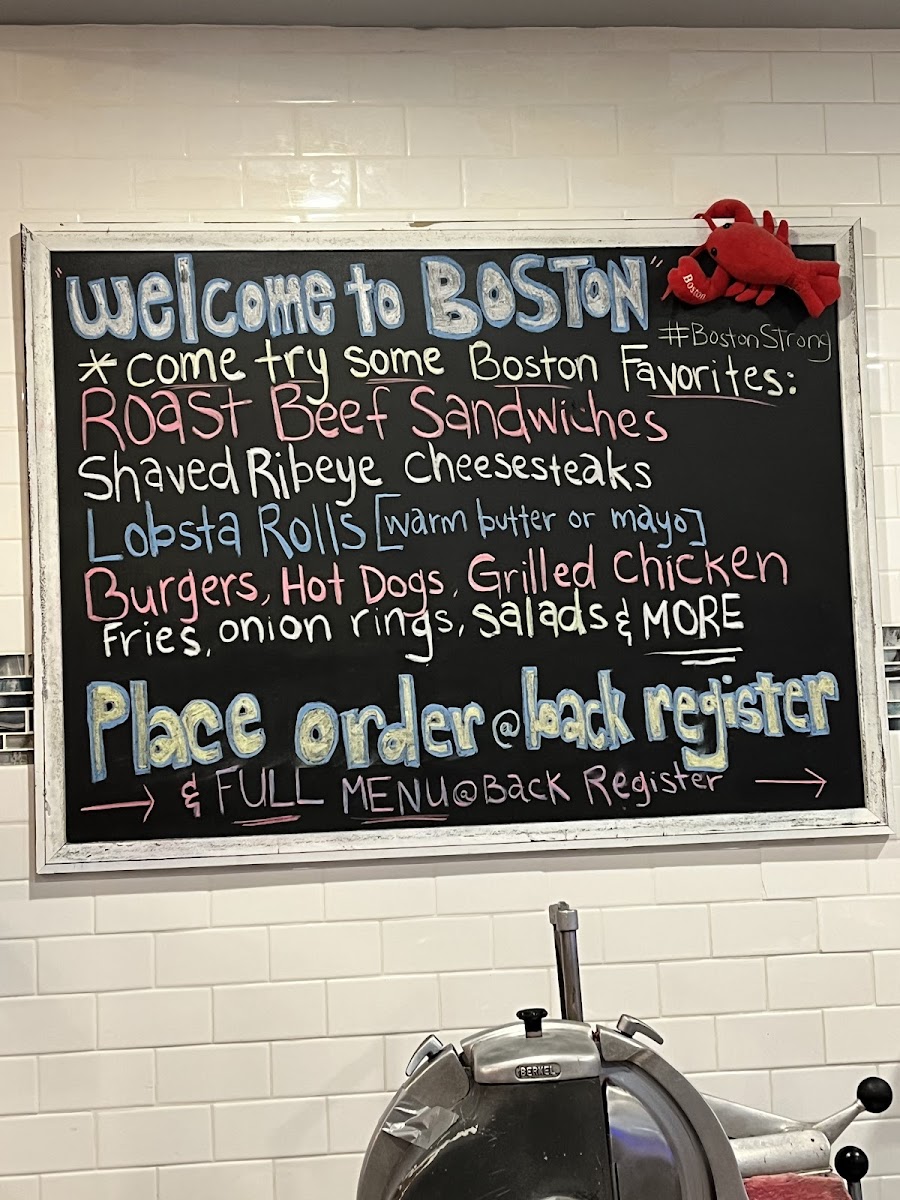 "Welcome to BOSTON"
#BostonStrong
Boston
* come try some Boston Favorites:
Roast Beef Sandwiches
Shaved Ribeye cheesesteaks
Lobsta Rolls [warm butter or mayo]
Burgers, Hot Dogs, Grilled Chicken
Fries, onion rings, salads & MORE
Place order @ back register
→ & FULL MENU @ Back Register →
BERKEL